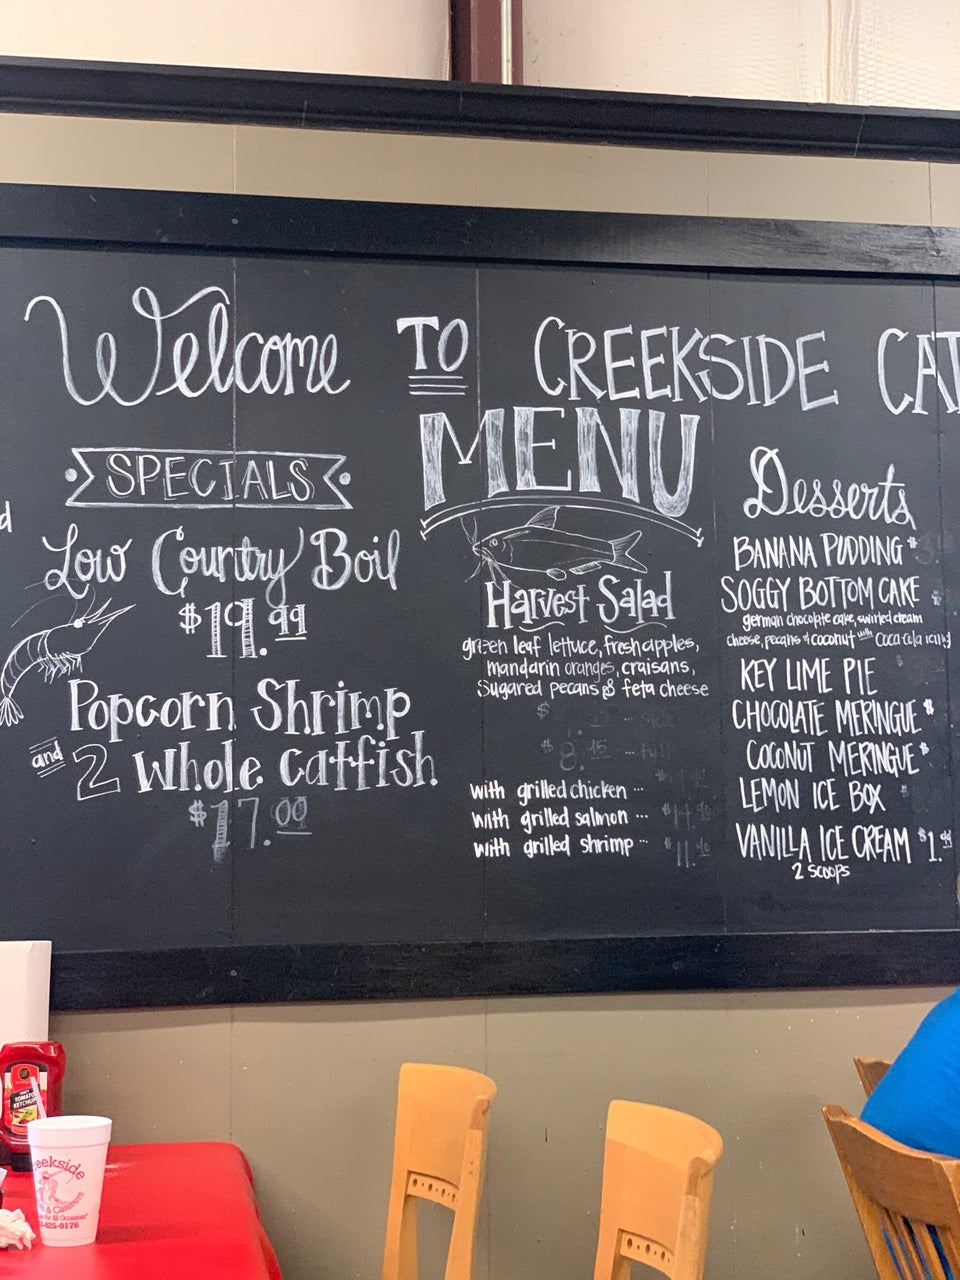 Welcome TO CREEKSIDE CAT
MENU
SPECIALS
Low Country Boil
$19.99
Popcorn Shrimp
and 2 Whole Catfish
$17.00
Harvest Salad
green leaf lettuce, fresh apples,
mandarin oranges, craisans,
Sugared pecans & feta cheese
with grilled chicken ...
with grilled salmon ...
with grilled shrimp ...
Desserts
BANANA PUDDING
SOGGY BOTTOM CAKE
german chocolate cake, swirled cream
cheese, pecans & coconut with Coca cola icing
KEY LIME PIE
CHOCOLATE MERINGUE $
COCONUT MERINGUE $
LEMON ICE BOX
VANILLA ICE CREAM $1.99
2 SCOOPS
TOMATO
KETCHUP
eekside
& Caterers
for All Occasions"
825-0176